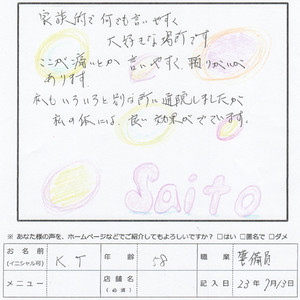 家族的で何でも言いやすく
大好きな場所です
ここが痛いとか言いやすく、頼りがいが
あります。
私もいろいろと別な所に通院しましたが
私の体には、良い効果がでています。
Saito
※あなた様の声を、ホームページなどでご紹介してもよろしいですか？ □はい □匿名で □ダメ
お名前 (イニシャル可) KT 年齢 58 職業 警備員
メニュー 店舗名 (必須) ご記入日 23年7月13日